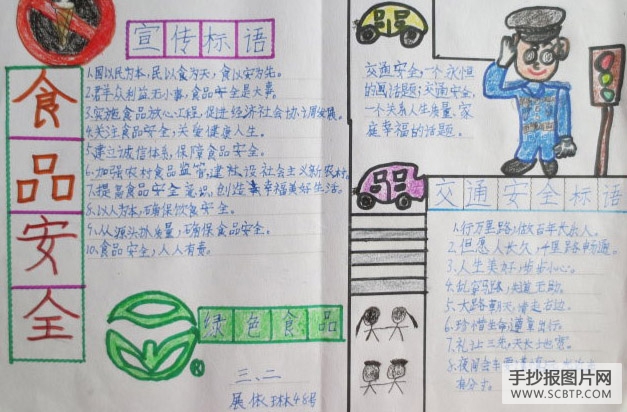 宣传标语
食品安全
1.国以民为本,民以食为天,食以安为先。
2.群众利益无小事,食品安全是大事
3.实施食品放心工程,促进经济社会协调发展。
4.关注食品安全,关爱健康人生。
5.建立诚信体系,保障食品安全。
6.加强农村食品监管,建设社会主义新农村。
7.提高食品安全意识,创造幸福美好生活。
8.以人为本,确保饮食安全。
9.从源头抓质量,确保食品安全。
10.食品安全,人人有责。
绿色食品
三、二
48号
交通安全,一个永恒
的话题;交通安全,
一个关系人生质量、家
庭幸福的话题。
交通安全标语
1.行万里路,做百年长乐人。
2.但愿人长久,千里路畅通。
3.人生美好,步步小心。
5.大路朝天,请走右边。
6.珍惜生命,遵章
7.礼让三先,天长地
8.夜间会车
手抄报图片网
WWW.SCBTP.COM